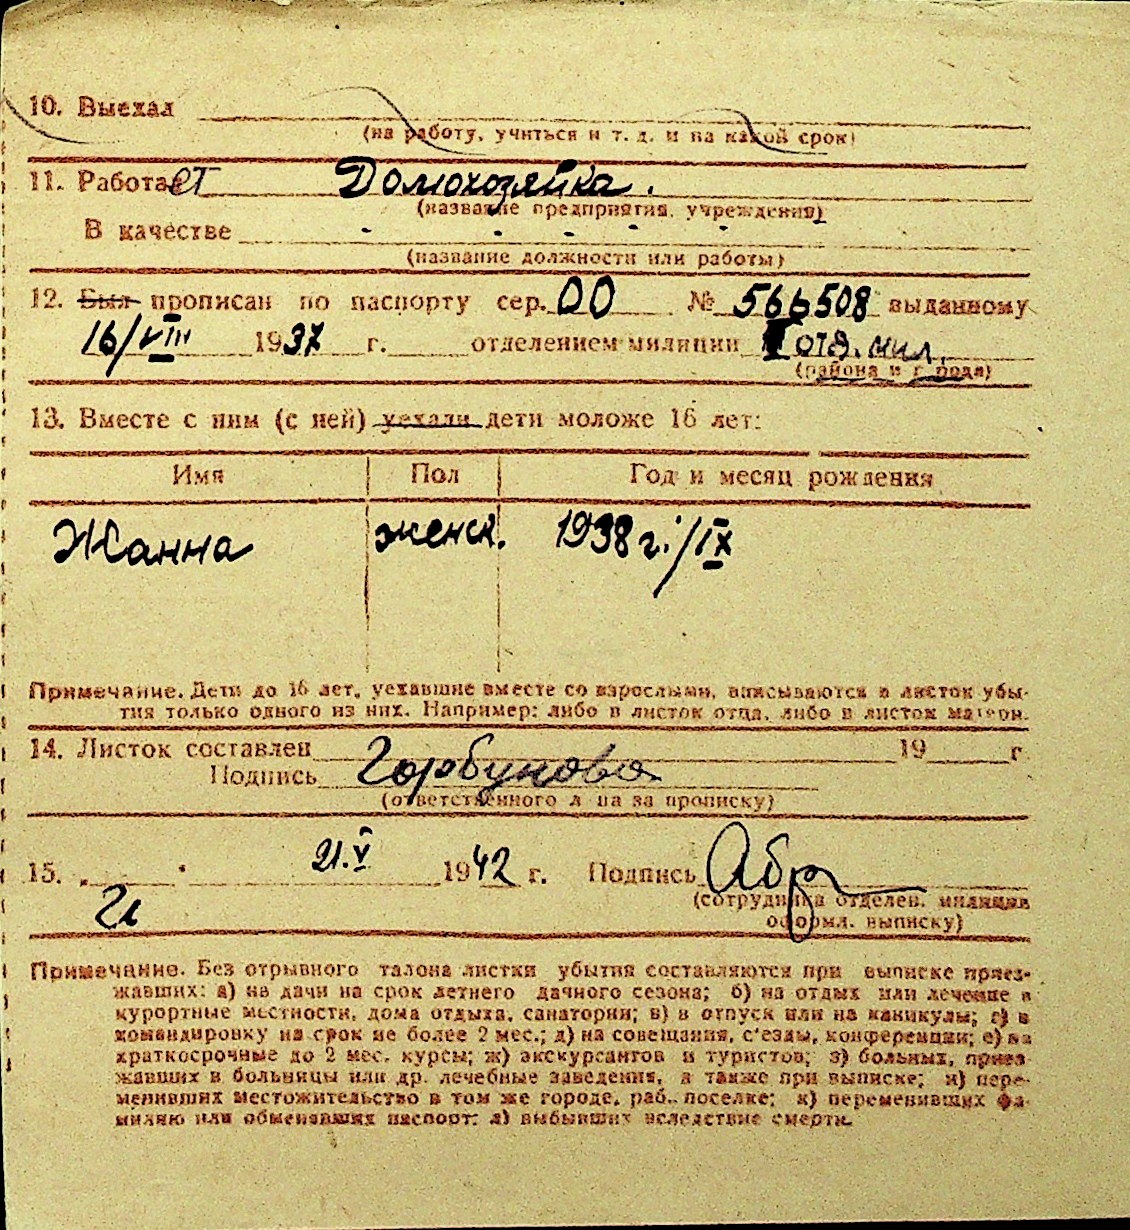 10. Выехал
(на работу, учиться и т. д. и на какой срок)
11. Работает Домохозяйка.
(название предприятия, учреждения)
В качестве - - - - -
(название должности или работы)
12. Был прописан по паспорту сер. ОО № 566508 выданному
16/VIII 1937 г. отделением милиции 1 отд. мил.
(района и города)
13. Вместе с ним (с ней) уехали дети моложе 16 лет:
Имя Пол Год и месяц рождения
Жанна женск. 1938 г./IX
Примечание. Дети до 16 лет, уехавшие вместе со взрослыми, вписываются в листок убы-
тия только одного из них. Например: либо в листок отца, либо в листок матери.
14. Листок составлен 19 г.
Подпись Горбунова
(ответственного лица за прописку)
15. 21.V 1942 г. Подпись Абр
(сотрудника отделен. милиции
оформл. выписку)
Примечание. Без отрывного талона листки убытия составляются при выписке приез-
жавших: а) на дачи на срок летнего дачного сезона; б) на отдых или лечение в
курортные местности, дома отдыха, санатории; в) в отпуск или на каникулы; г) в
командировку на срок не более 2 мес.; д) на совещания, с'езды, конференции; е) на
краткосрочные до 2 мес. курсы; ж) экскурсантов и туристов; з) больных, приез-
жавших в больницы или др. лечебные заведения, а также при выписке; и) пере-
менивших местожительство в том же городе, раб. поселке; к) переменивших фа-
милию или обменявших паспорт; л) выбывших вследствие смерти.